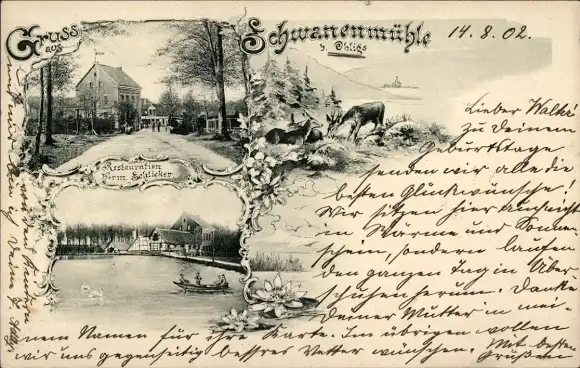 Gruss
aus
Schwanenmühle
b. Ohligs
14.8.02.
Restauration
Herm. Schlicker
Lieber Walter
zu deinem
Geburtstage
senden wir alle die
besten Glückwünsche!
Wir sitzen hier
in Wärme und Sonnen-
schein, sondern laufen
den ganzen Tag in Über-
schuhen herum. Danke
deiner Mutter in mei-
nem Namen für ihre Karte. Im übrigen wollen
wir uns gegenseitig bessres Wetter wünschen. Mit besten
Grüßen